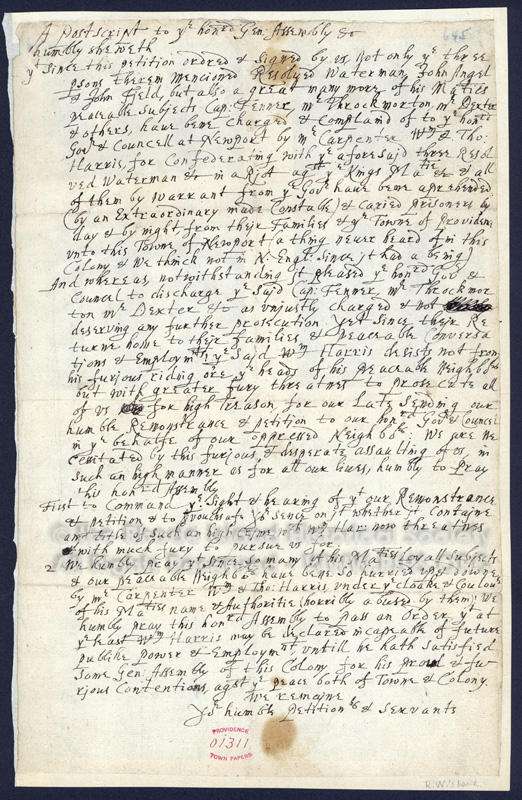 A Postscript to yᵉ honʳᵈ Gen: Assembly &c
645
humbly sheweth
yᵗ Since this petition ordred & Signed by us, Not only yᵉ three
psons therein mentioned Resolved Waterman, John Angel
& John Field, but also a great many more of his Maties
peaceable Subjects Cap: Fenner, mʳ Throckmorton, mʳ Dexter
& others, have bene charged & Complaind of to yᵉ honʳᵈ
Govʳ & Councell at Newport by mʳ Carpenter Wᵐ & Tho:
Harris, for Confederating with yᵉ aforesaid three Resol
ved Waterman &c in a Riot agst yᵉ Kings Matie & all
of them by Warrant from yᵉ Govʳ have bene aprehended
(by an Extraordinary made Constable) & caried prisoners by
day & by night, from their Families & yᵉ Towne of Providence
unto this Towne of Newport a thing never heard of in this
Colony & We thinck not in N: Engl: Since it had a being)
And whereas, notwithstanding it pleased yᵉ honʳᵈ Govʳ &
Council to discharge yᵉ Said Cap: Fenner, mʳ Throckmor
ton mʳ Dexter &c as unjustly charged & not
deserving any further prosecution, yet Since their Re
turne home to their Families & peaceable Conversa
tions & Employmts, yᵉ Said Wᵐ Harris desists not from
his furious riding ore yᵉ heads of his peaceable Neighbors
but with greater fury threatnes to prosecute all
of us for high Treason, for our Late Sending our
humble Remonstrance & petition to our honʳᵈ Govʳ & Councel
in yᵉ behalfe of our oppressed Neighbors: We are ne
cessitated by this furious, & desperate assaulting of us, in
Such an high manner as for all our lives, humbly to Pray
this honʳᵈ Assembly
First to Command yᵉ Sight & hearing of yᵗ our Remonstrance
& petition & to vouchsafe yoʳ Sence on it whether it Containe
any title of Such an high Crime wᶜʰ Wᵐ Har: now threatnes
& with much fury to pursue us for
2 We humbly pray yᵗ Since & many of his Maties loyall Subjects
& our peaceable Neighbors have bene So hurried up & downe
by mʳ Carpenter Wᵐ & Tho: Harris under yᵉ cloake & Coulour
of his Maties name & Authoritie (horribly abused by them) We
humbly pray this honʳᵈ Assembly to pass an Order yᵗ at
yᵉ least Wᵐ Harris may be declared incapeable of future
publike power & Employmt, untill he hath Satisfied
Some Gen: Assembly of this Colony for his proud & fu
rious Contentions, agst yᵉ peace both of Towne & Colony.
We remaine
Yoʳ humble Petitionʳˢ & Servants
PROVIDENCE
01311
TOWN PAPERS